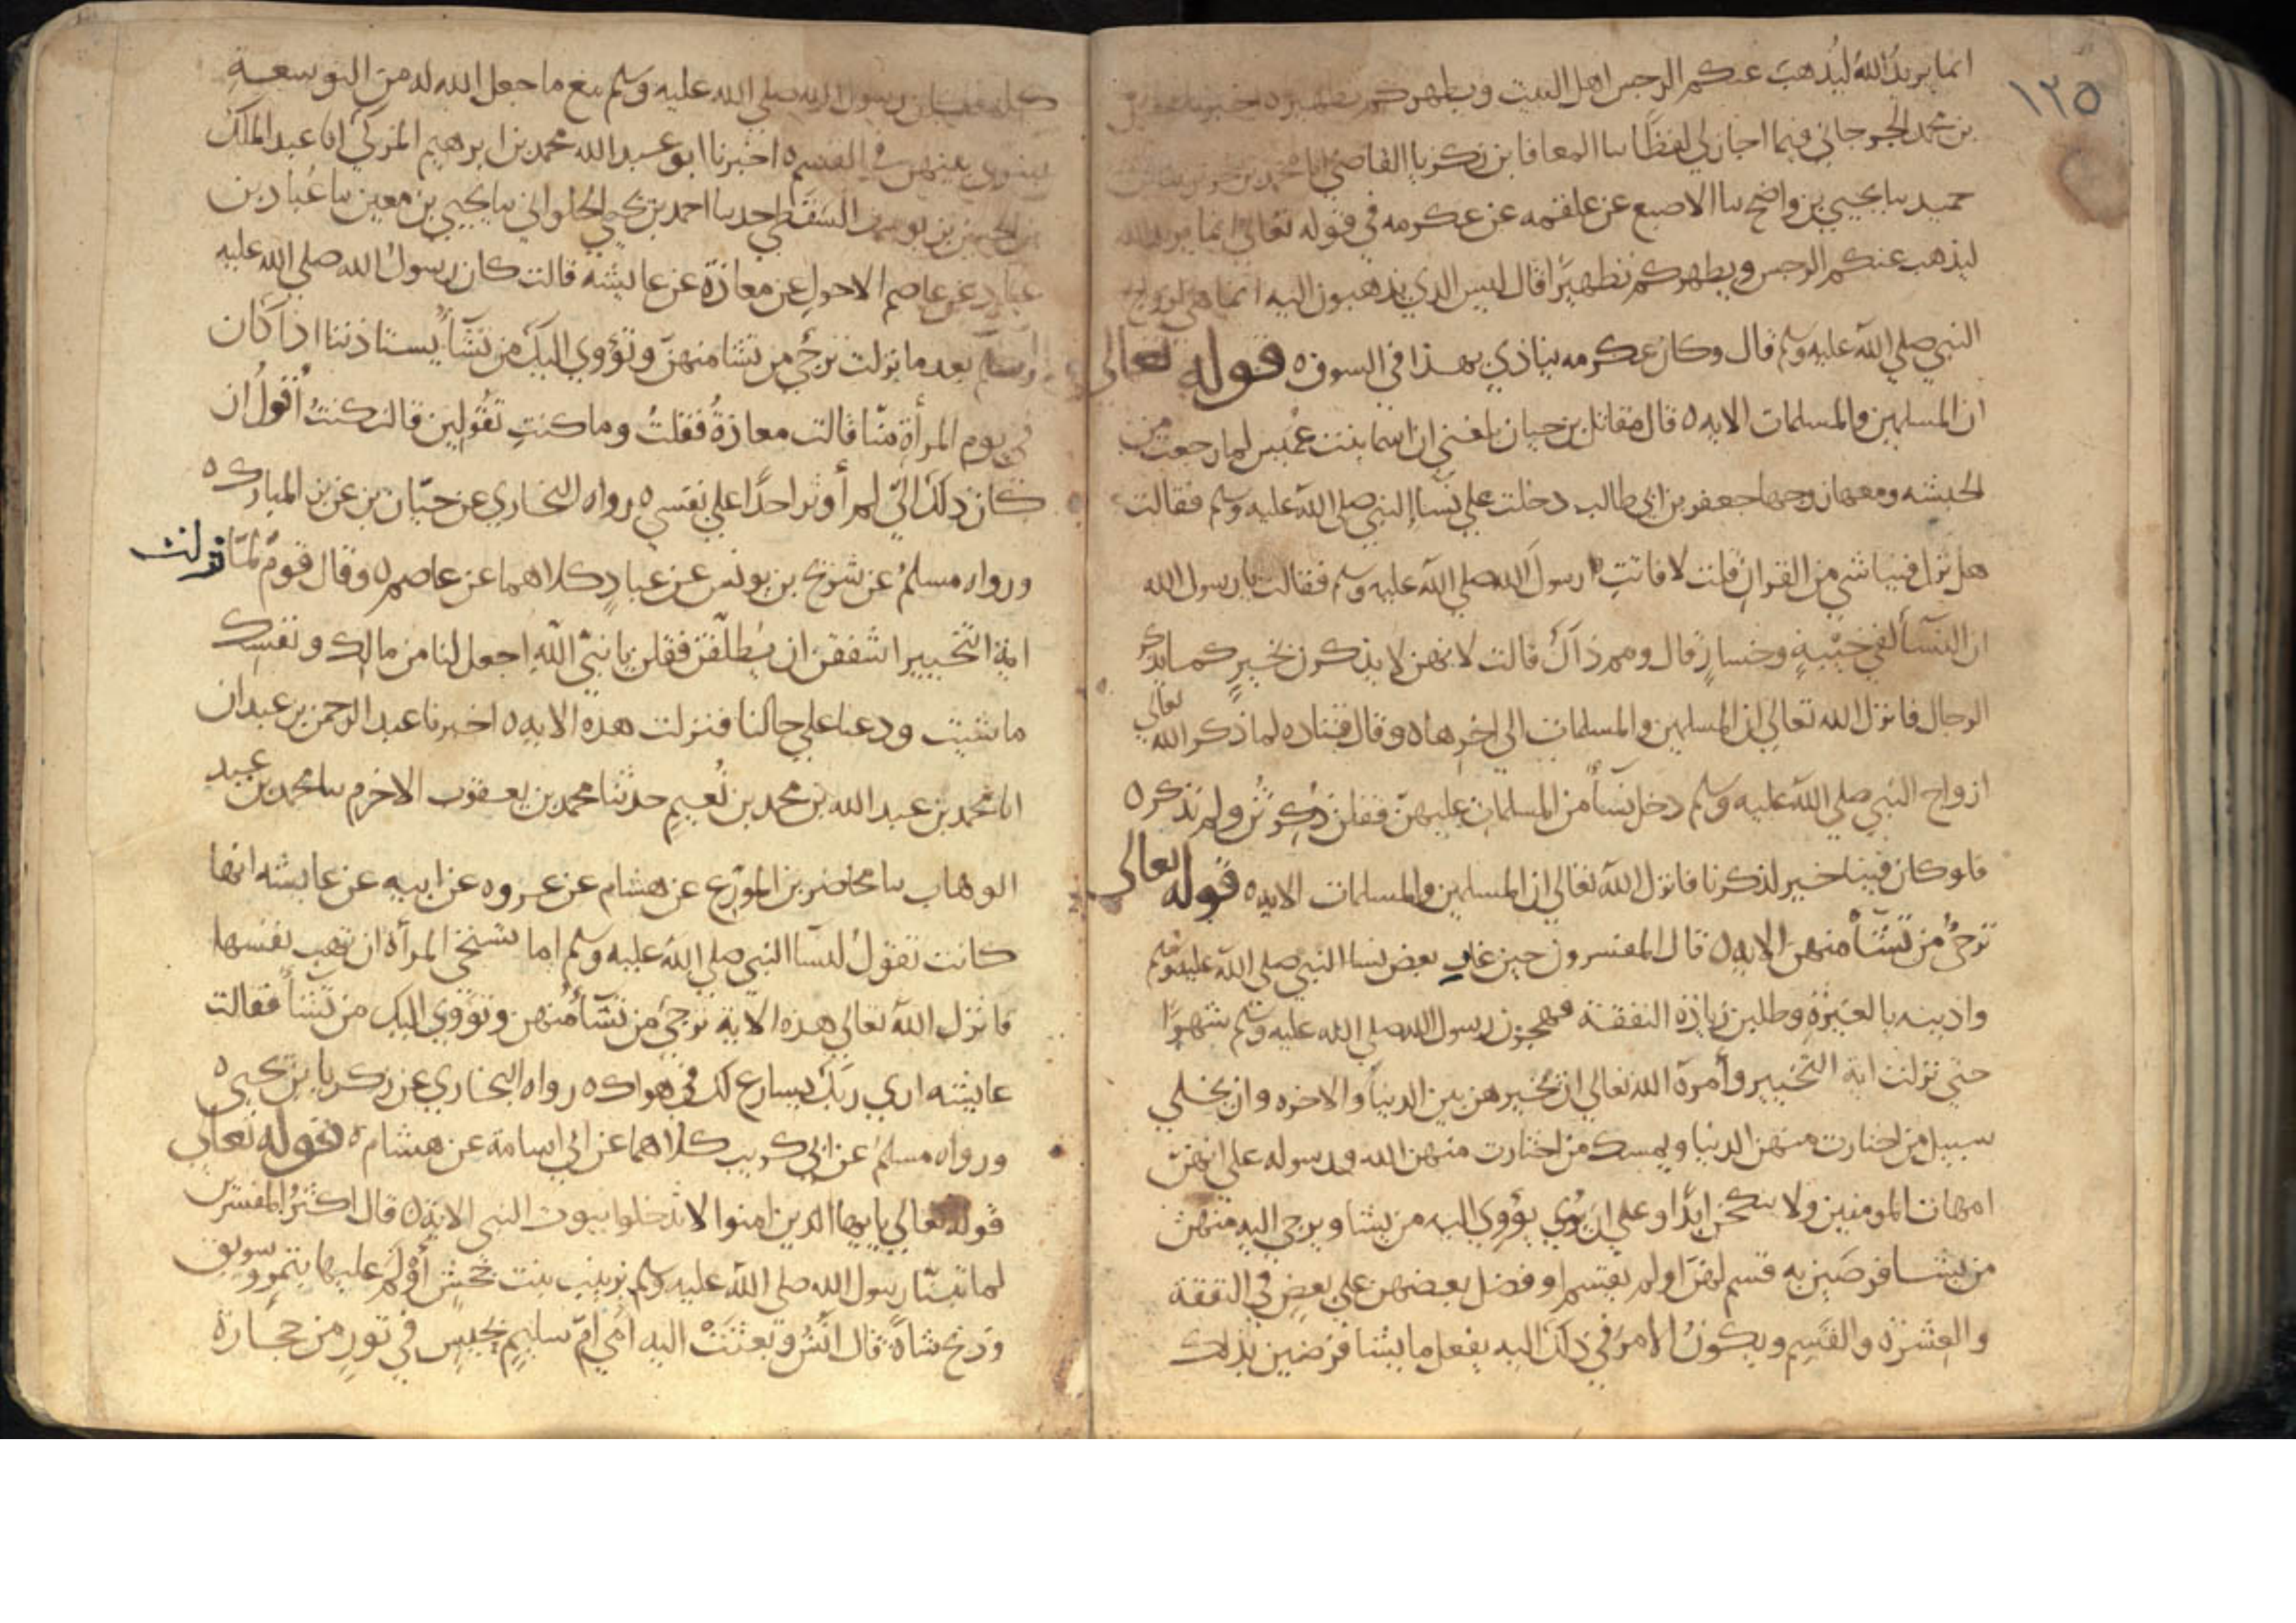 ١٢٥
انما يريد الله ليذهب عنكم الرجس اهل البيت ويطهركم تطهيرا ه اخبرنا عقيل
بن محمد الجرجاني فيما اجاز لي لفظًا سا المعافا بن زكريا القاضي انا محمد بن جرير سا بن
حميد سا يحيي بن واضح سا الاصبع عن علقمه عن عكرمه في قوله تعالي انما يريد الله
ليذهب عنكم الرجس ويطهركم تطهيرًا قال ليس الدي يذهبون اليه انما هي ازواج
النبي صلي الله عليه وسلم قال وكان عكرمه ينادي بهذا في السوق ه قوله تعالى
ان المسلمين والمسلمات الايه ه قال مقاتل بن حيان بلغني ان اسما بنت عميس لما رجعت من
الحبشه ومعها زوجها جعفر بن ابي طالب دخلت علي نسا النبي صلي الله عليه وسلم فقالت
هل نزل فينا شي من القران قلن لا فاتت رسول الله صلي الله عليه وسلم فقالت يا رسول الله
ان النسأ لفي خيبةٍ وخسارٍ قال ومم ذاك قالت لانهن لا يذكرن بخيرٍ كما يذكر
الرجال فانزل الله تعالي ان المسلمين والمسلمات الي اخرها ه وقال قتاده لما ذكر الله تعالي
ازواج النبي صلي الله عليه وسلم دخل نسأ من المسلمات عليهن فقلن ذكرتن ولم نذكر ه
فلو كان فينا خير لذكرنا فانزل الله تعالي ان المسلمين والمسلمات الايه ه قوله تعالى
ترجئ من تشأ منهن الايه ه قال المفسرون حين غار بعض نسا النبي صلي الله عليه وسلم
واذينه بالغيرة وطلبن زيادة النفقة فهجرن رسول الله صلي الله عليه وسلم شهرًا
حتي نزلت اية التخيير وأمره الله تعالي ان يخيرهن بين الدنيا والاخره وان يخلي
سبيل من اختارت منهن الدنيا ويمسك من اختارت منهن الله ورسوله علي انهن
امهات المومنين ولا ينكحن ابدًا وعلي ان يؤوي اليه من يشا ويرجي اليه منهن
من يشا فرضين به قسم لهن او لم يقسم او فضل بعضهن علي بعض في النفقة
والعشرة والقسم ويكون الامر في ذلك اليه يفعل ما يشا فرضين بذلك
كله فكان رسول الله صلي الله عليه وسلم مع ما جعل الله له من التوسعة
يسوي بينهن في القسم ه اخبرنا ابو عبد الله محمد بن ابرهيم المزكي انا عبد الملك
بن الحسن بن يوسف السقطي حدسا احمد بن يحيي الحلواني سا يحيي بن معين سا عباد بن
عباد عن عاصم الاحول عن معاذة عن عايشه قالت كان رسول الله صلي الله عليه
وسلم بعد ما نزلت ترجئ من تشا منهن وتؤوي اليك من تشأ يستاذننا اذا كان
في يوم المرأة منّا قالت معاذةُ فقلتُ وما كنتِ تقولين قالت كنتُ أقولُ ان
كان ذلك اليّ لم أوثر احدًا علي نفسي ه رواه البخاري عن حبّان بن عن بن المبارك ه
ورواه مسلمُ عن شريح بن يونس عن عبادٍ كلاهما عن عاصم ه وقال قومُ لمّا نزلت
اية التخيير اشفقن ان يُطلّقن فقلن يا نبي الله اجعل لنا من مالك ونفسك
ما شيت ودعنا علي حالنا فنزلت هذه الايه ه اخبرنا عبد الرحمن بن عبدان
انا محمد بن عبد الله بن محمد بن نُعيمٍ حدثنا محمد بن يعقوب الاخرم سا محمد بن عبد
الوهاب سا محاضر بن المورع عن هشام عن عروه عن ابيه عن عايشه انها
كانت تقول لنسا النبي صلي الله عليه وسلم اما تستحي المرأة ان تهب نفسها
فانزل الله تعالي هذه الاية ترجئ من تشأ منهن وتؤوي اليك من تشأ فقالت
عايشه اري ربّك يسارع لك في هواك ه رواه البخاري عن زكريا بن يحيي ه
ورواه مسلم عن ابي كريب كلاهما عن ابي اسامة عن هشام ه قوله تعالى
قوله تعالي يا يها الدين امنوا لا تدخلوا بيوت النبي الايه ه قال اكثرُ المفسرين
لما بنا رسول الله صلي الله عليه وسلم بزينب بنت جحشٍ أوْلَمَ عليها بتمرٍ وسويق
وذبح شاةً قال انسُ وبعثَتْ اليه امي امّ سليمٍ بحيسٍ في تورٍ من حجارة